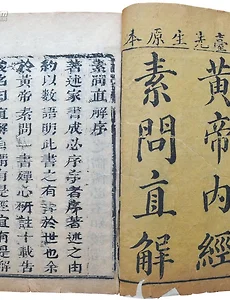 臺先生原本
黄帝內經
素問直解
素問直解序
著述家書成必序序者序著述之由
約以數語明此書之有詳於世也余
於黄帝素問一書殫心研註十載告